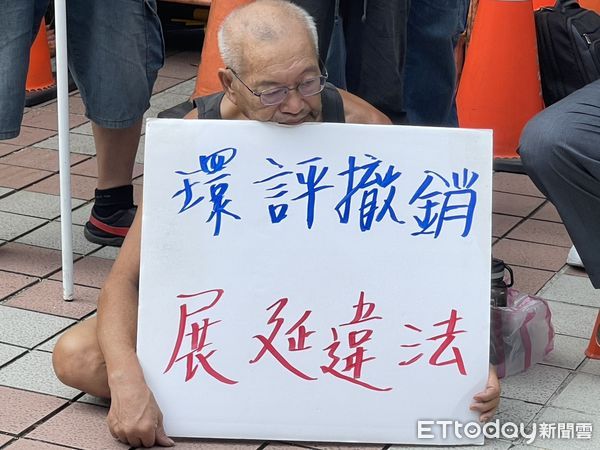 環評撤銷
展延違法
ETtoday新聞雲